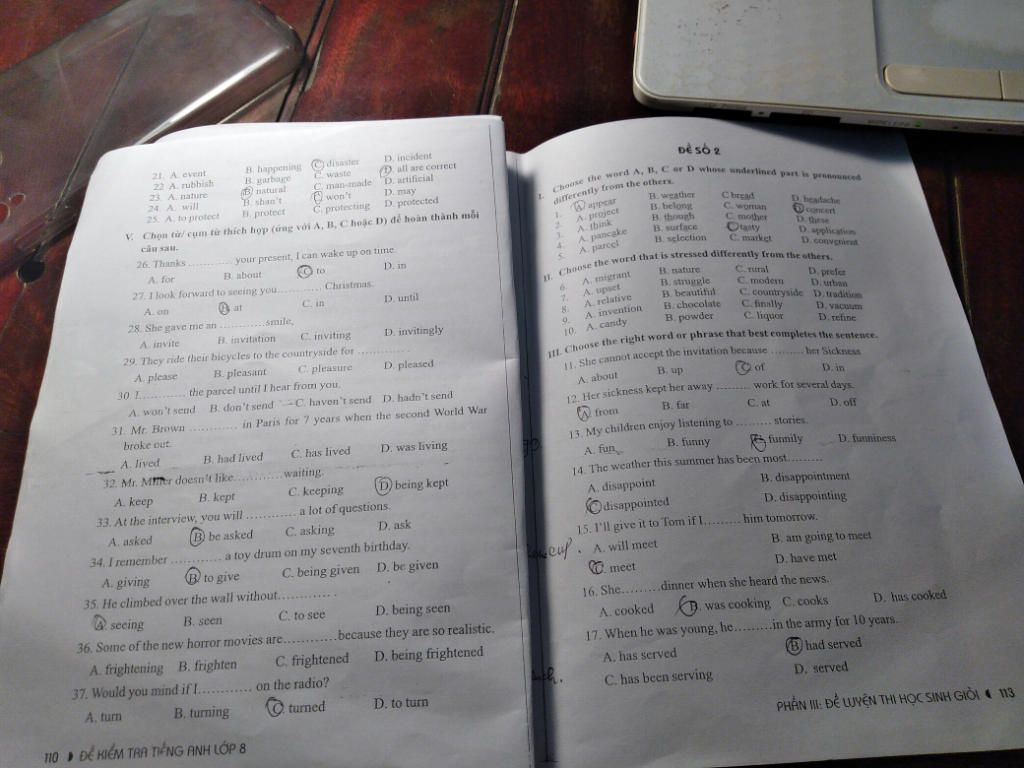 21. A. event B. happening C. disaster D. incident
22 A. rubbish B. garbage C. waste D. all are correct
23. A. nature B. natural C. man-made D. artificial
24. A. will B. shan't C. won't D. may
25. A. to protect B. protect C. protecting D. protected
V. Chọn từ/ cụm từ thích hợp (ứng với A, B, C hoặc D) để hoàn thành mỗi
câu sau.
26. Thanks ............ your present, I can wake up on time.
A. for B. about C. to D. in
27. I look forward to seeing you............ Christmas.
A. on B. at C. in D. until
28. She gave me an ............smile,
A. invite B. invitation C. inviting D. invitingly
29. They ride their bicycles to the countryside for ............
A. please B. pleasant C. pleasure D. pleased
30. I............ the parcel until I hear from you.
A. won't send B. don't send C. haven't send D. hadn't send
31. Mr. Brown ............ in Paris for 7 years when the second World War
broke out.
A. lived B. had lived C. has lived D. was living
32. Mr. Miller doesn't like............waiting.
A. keep B. kept C. keeping D. being kept
33. At the interview, you will ............ a lot of questions.
A. asked B. be asked C. asking D. ask
34. I remember ............ a toy drum on my seventh birthday.
A. giving B. to give C. being given D. be given
35. He climbed over the wall without............ .
A. seeing B. seen C. to see D. being seen
36. Some of the new horror movies are............because they are so realistic.
A. frightening B. frighten C. frightened D. being frightened
37. Would you mind if I............ on the radio?
A. turn B. turning C. turned D. to turn
110 ĐỀ KIỂM TRA TIẾNG ANH LỚP 8
ĐỀ SỐ 2
I. Choose the word A, B, C or D whose underlined part is pronounced
differently from the others.
1. A. appear B. weather C bread D. headache
2. A. project B. belong C. woman D. concert
3. A. think B. though C. mother D. these
4. A. pancake B. surface C. tasty D. application
5. A. parcel B. selection C. market D. convenient
II. Choose the word that is stressed differently from the others.
6. A. migrant B. nature C. rural D. prefer
7. A. upset B. struggle C. modern D. urban
8. A. relative B. beautiful C. countryside D. tradition
9. A. invention B. chocolate C. finally D. vacuum
10. A. candy B. powder C. liquor D. refine
III. Choose the right word or phrase that best completes the sentence.
11. She cannot accept the invitation because ......... her Sickness
A. about B. up C. of D. in
12. Her sickness kept her away ......... work for several days.
A. from B. far C. at D. off
13. My children enjoy listening to ......... stories.
A. fun B. funny C. funnily D. funniness
14. The weather this summer has been most.........
A. disappoint B. disappointment
C. disappointed D. disappointing
15. I'll give it to Tom if I......... him tomorrow.
A. will meet B. am going to meet
C. meet D. have met
16. She.........dinner when she heard the news.
A. cooked B. was cooking C. cooks D. has cooked
17. When he was young, he.........in the army for 10 years.
A. has served B. had served
C. has been serving D. served
PHẦN III: ĐỀ LUYỆN THI HỌC SINH GIỎI 113